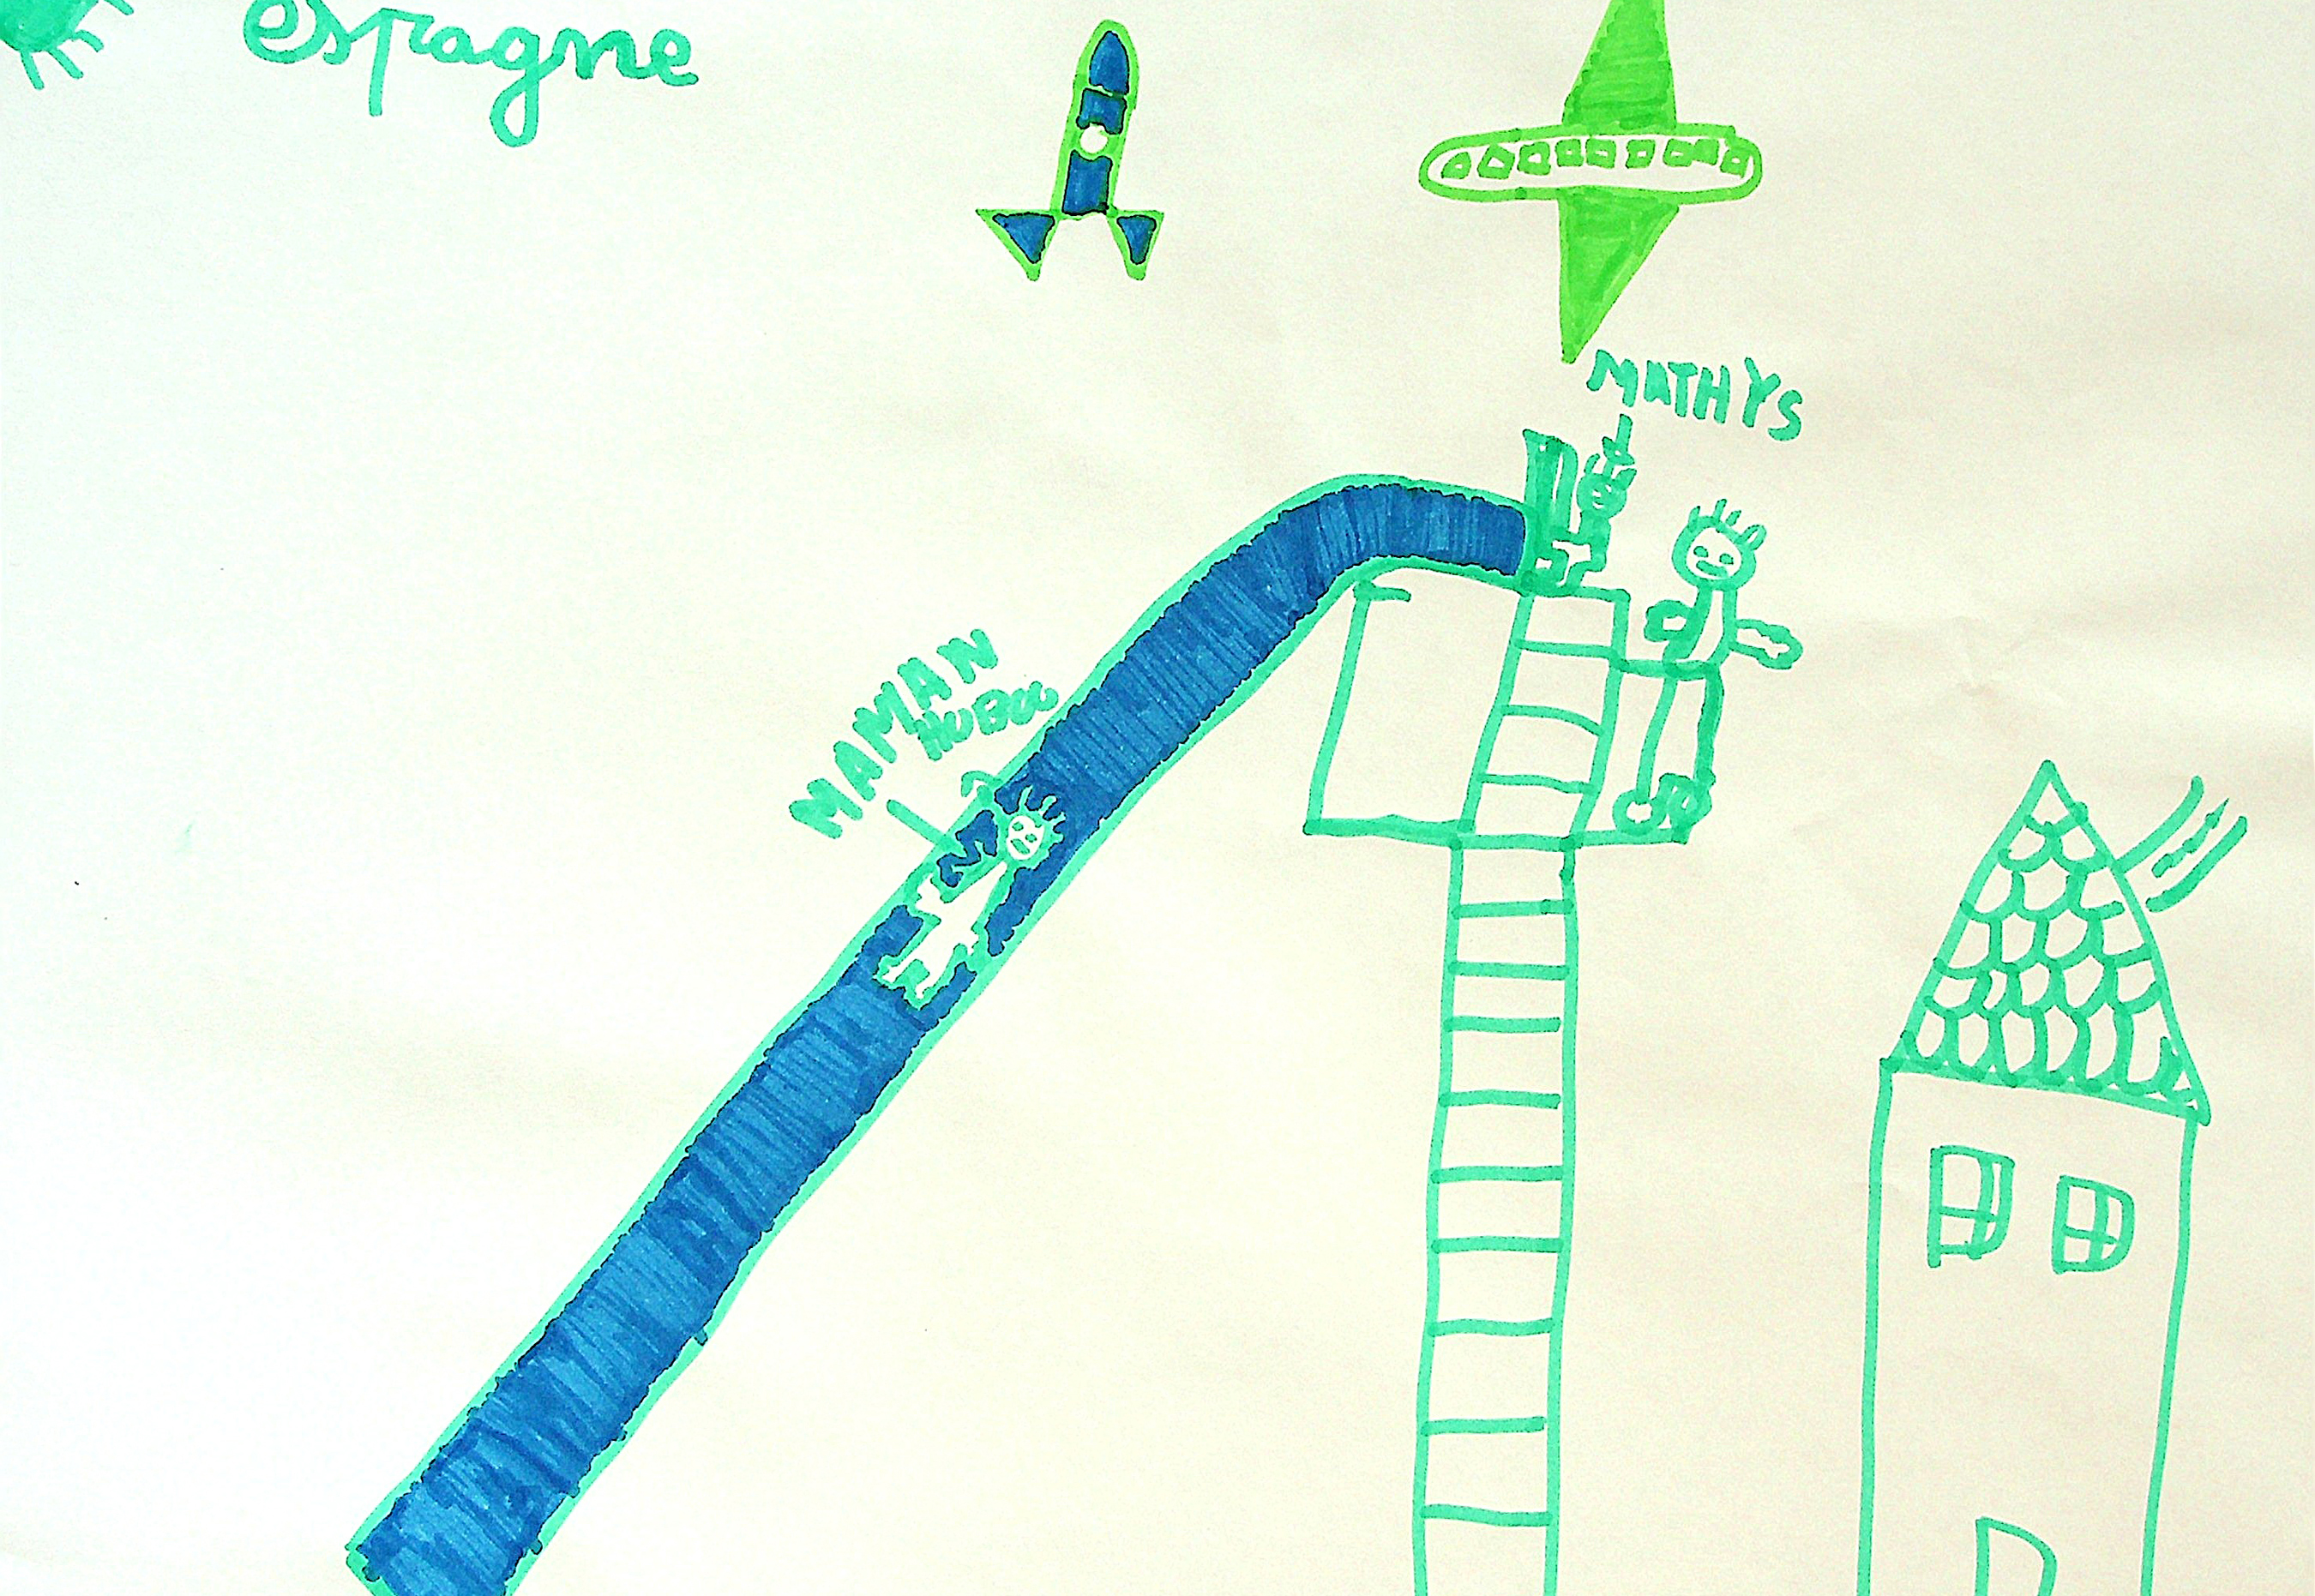 espagne
MATHYS
MAMAN